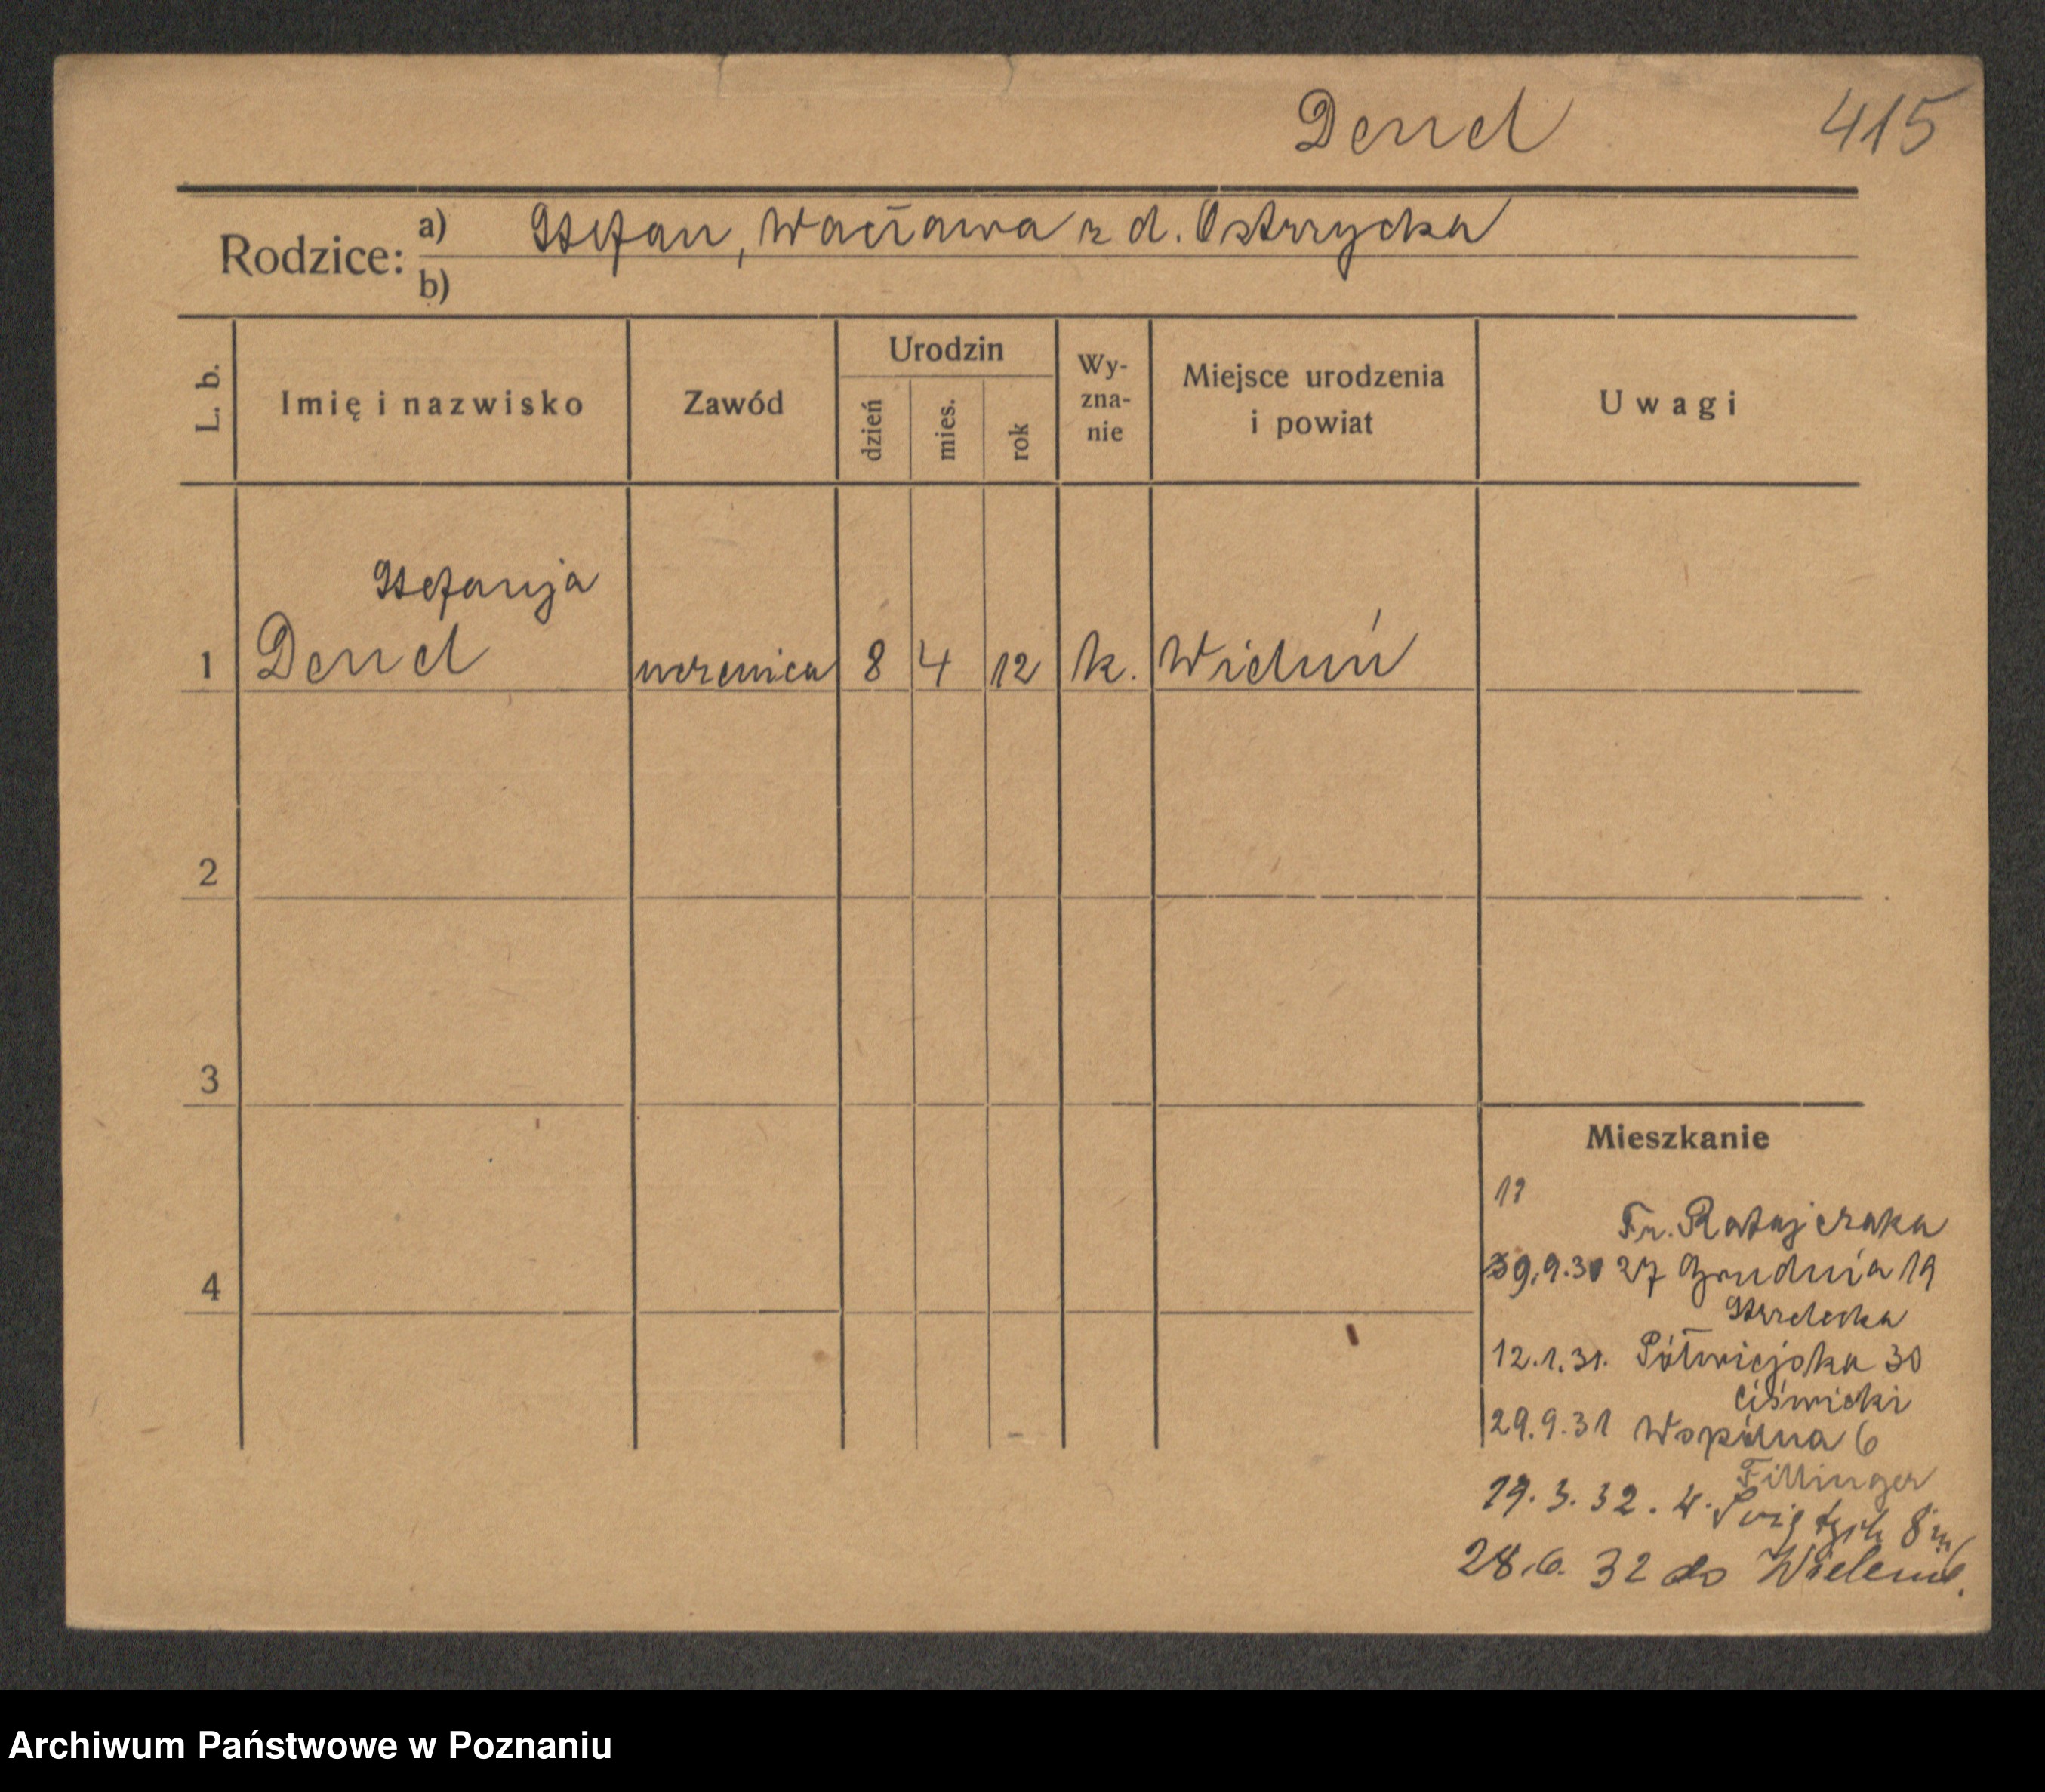 Derud 415
Rodzice: a) Stefan, Wacława z d. Ostrzycka
b)
L. b. Imię i nazwisko Zawód Urodzin dzień mies. rok Wy-zna-nie Miejsce urodzenia i powiat Uwagi
Stefanja
1 uczenica 8 4 12 k. Wieluń
2
3
Mieszkanie
Fr. Ratajczaka
4 27 Grudnia 19
Strzelecka
12.1.31. Półwiejska 30
Ciświcki
29.9.31 Wspólna 6
Fillinger
19.3.32. W. Świętych 8 m 6
28.6.32 do Wielunia.
Archiwum Państwowe w Poznaniu